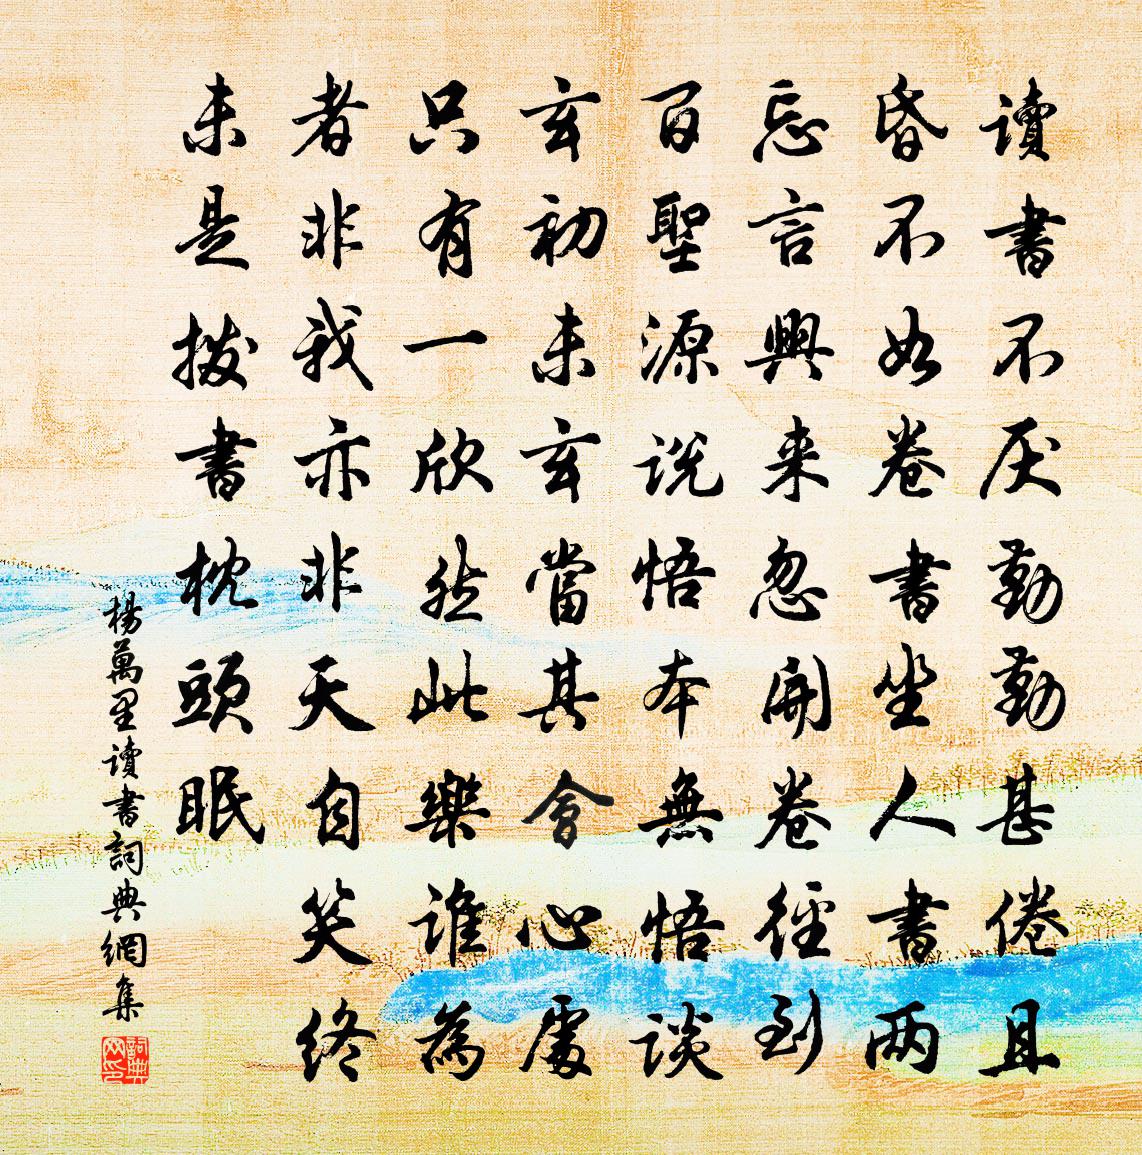 讀書不厌勤勤甚倦且
昏不如卷書坐人書兩
忘言興来忽開卷徑到
百聖源說悟本無悟談
玄初未玄當其會心處
只有一欣然此樂誰為
者非我亦非天自笑終
未是撥書枕頭眠
楊萬里讀書詞典網集
詞典网印